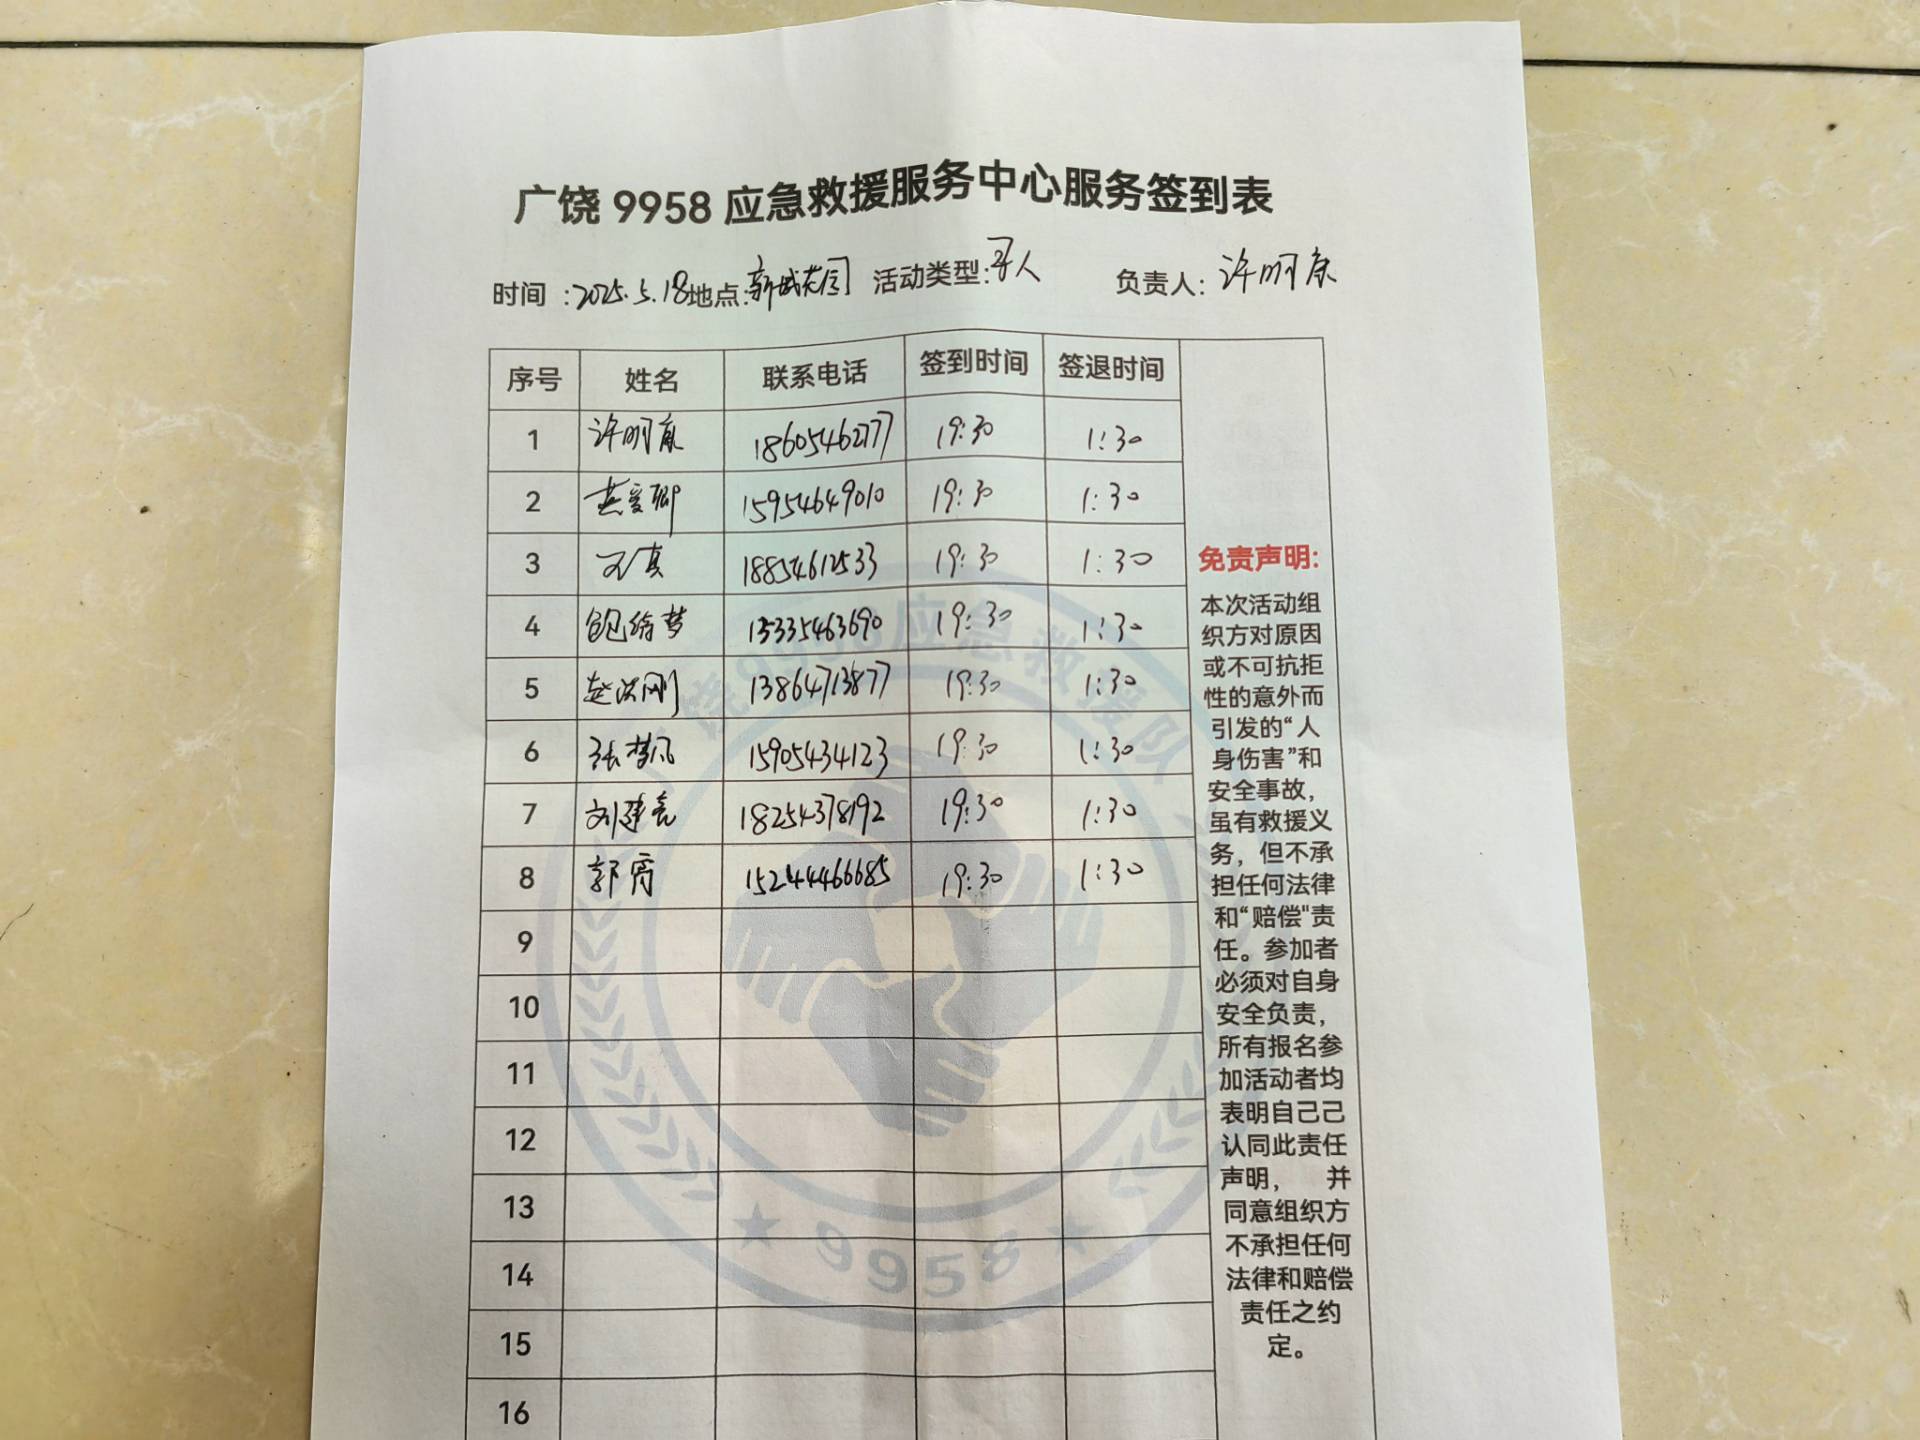 广饶 9958 应急救援服务中心服务签到表
时间：2025.5.18 地点: 新城花园 活动类型: 寻人 负责人: 许明康
序号 姓名 联系电话 签到时间 签退时间
1 许明康 18605462777 19:30 1:30
2 燕爱卿 15954649010 19:30 1:30
3 王真 18854612533 19:30 1:30
4 13335463690 19:30 1:30
5 赵洪刚 13864713877 19:30 1:30
6 张梦凡 15905434123 19:30 1:30
7 18254378192 19:30 1:30
8 郭霄 15244466685 19:30 1:30
9
10
11
12
13
14
15
16
免责声明:
本次活动组
织方对原因
或不可抗拒
性的意外而
引发的“人
身伤害”和
安全事故，
虽有救援义
务，但不承
担任何法律
和“赔偿"责
任。参加者
必须对自身
安全负责，
所有报名参
加活动者均
表明自己己
认同此责任
声明， 并
同意组织方
不承担任何
法律和赔偿
责任之约
定。
饶9958应急救援队
9958